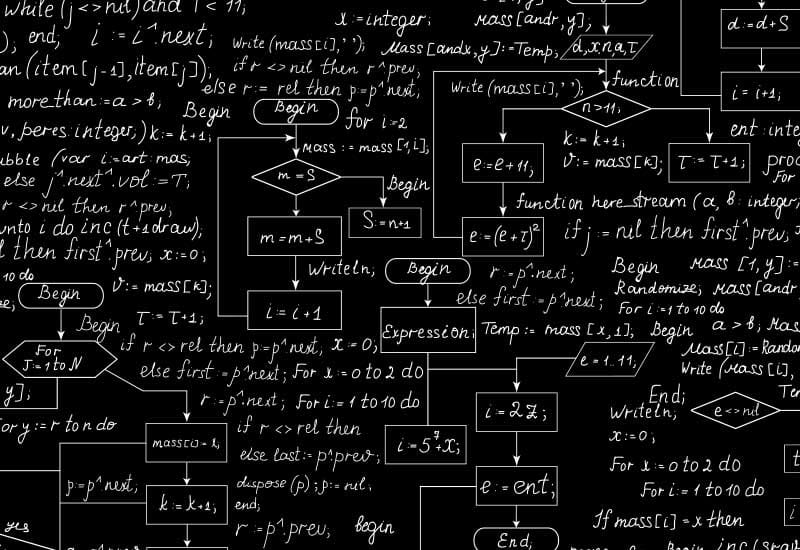 while (j <> nil) and i < 11;
x:=integer;
mass[andr,y];
d:=d+S
), end;
i := i^.next;
Write (mass[i],' ');
Mass[andx,y]:=Temp;
d,x,n,a,τ
(item[j-1],item[j]);
if r <> nil then r^prev,
function
else r:= rel then p:=p^next;
Write (mass[i],' ');
i= i+1,
more_than:=a > b,
Begin
Begin
for i:=2
n>11,
v, peres:integer;)
k:= k+1;
k:= k+1;
mass := mass[1,i];
(var i:=art:mas;
m=S
e:=e+11,
v:= mass[k];
τ:= τ+1;
else j^.next^.vol:=T;
Begin
r <> nil then r^prev,
S:=n+1
function here_stream (a, b: integer,
unto i do inc(t+1draw);
m=m+S
e:=(e+τ)²
if j := nil then first^.prev,
then first^.prev; x:=0;
Writeln,
Begin
r :=p^.next;
Begin
Mass [1,y]:=
10 do
Begin
v:= mass[k];
else first :=p^next;
Randomize, mass[andr
i:= i+1
For i:=1 to 10 do
Begin
τ:= τ+1;
Expression;
Temp:= mass [x,1];
Begin
a > b;
For
J:=1 to N
if r <> rel then p:=p^next, x:=0;
e=1..11;
Mass[i]:=Random
else first:=p^next;
For x:=0 to 2 do
Write (Mass[i],
y];
r:=p^.next;
For i:=1 to 10 do
i:=2Z;
End;
Writeln;
e<>nil
For y:=r to n do
mass[i]-1,
if r <> rel then
i:=5⁷+x;
x:=0;
else last:=p^.prev;
For x:=0 to 2 do
p:=p^next;
k:= k+1,
dispose (p);p:= nil,
e:=ent;
For i:=1 to 10 do
end;
yes
r:=p^.prev;
begin
End;
If mass[i]=x then
Begin